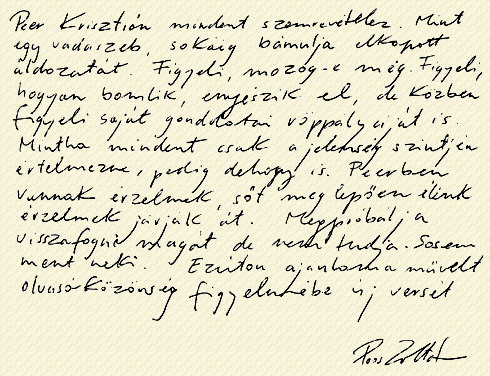 Peer Krisztián mindent szemrevételez. Mint
egy vadászeb, sokáig bámulja elkapott
áldozatát. Figyeli, mozog-e még. Figyeli,
hogyan bomlik, enyészik el, de közben
figyeli saját gondolatai röppályáját is.
Mintha mindent csak a jelenség szintjén
értelmezne, pedig dehogy is. Peerben
vannak érzelmek, sőt meglepően élénk
érzelmek járják át. Megpróbálja
visszafogni magát de nem tudja. Sosem
ment neki. Ezúton ajánlanám a művelt
olvasóközönség figyelmébe új versét
Poós Zoltán